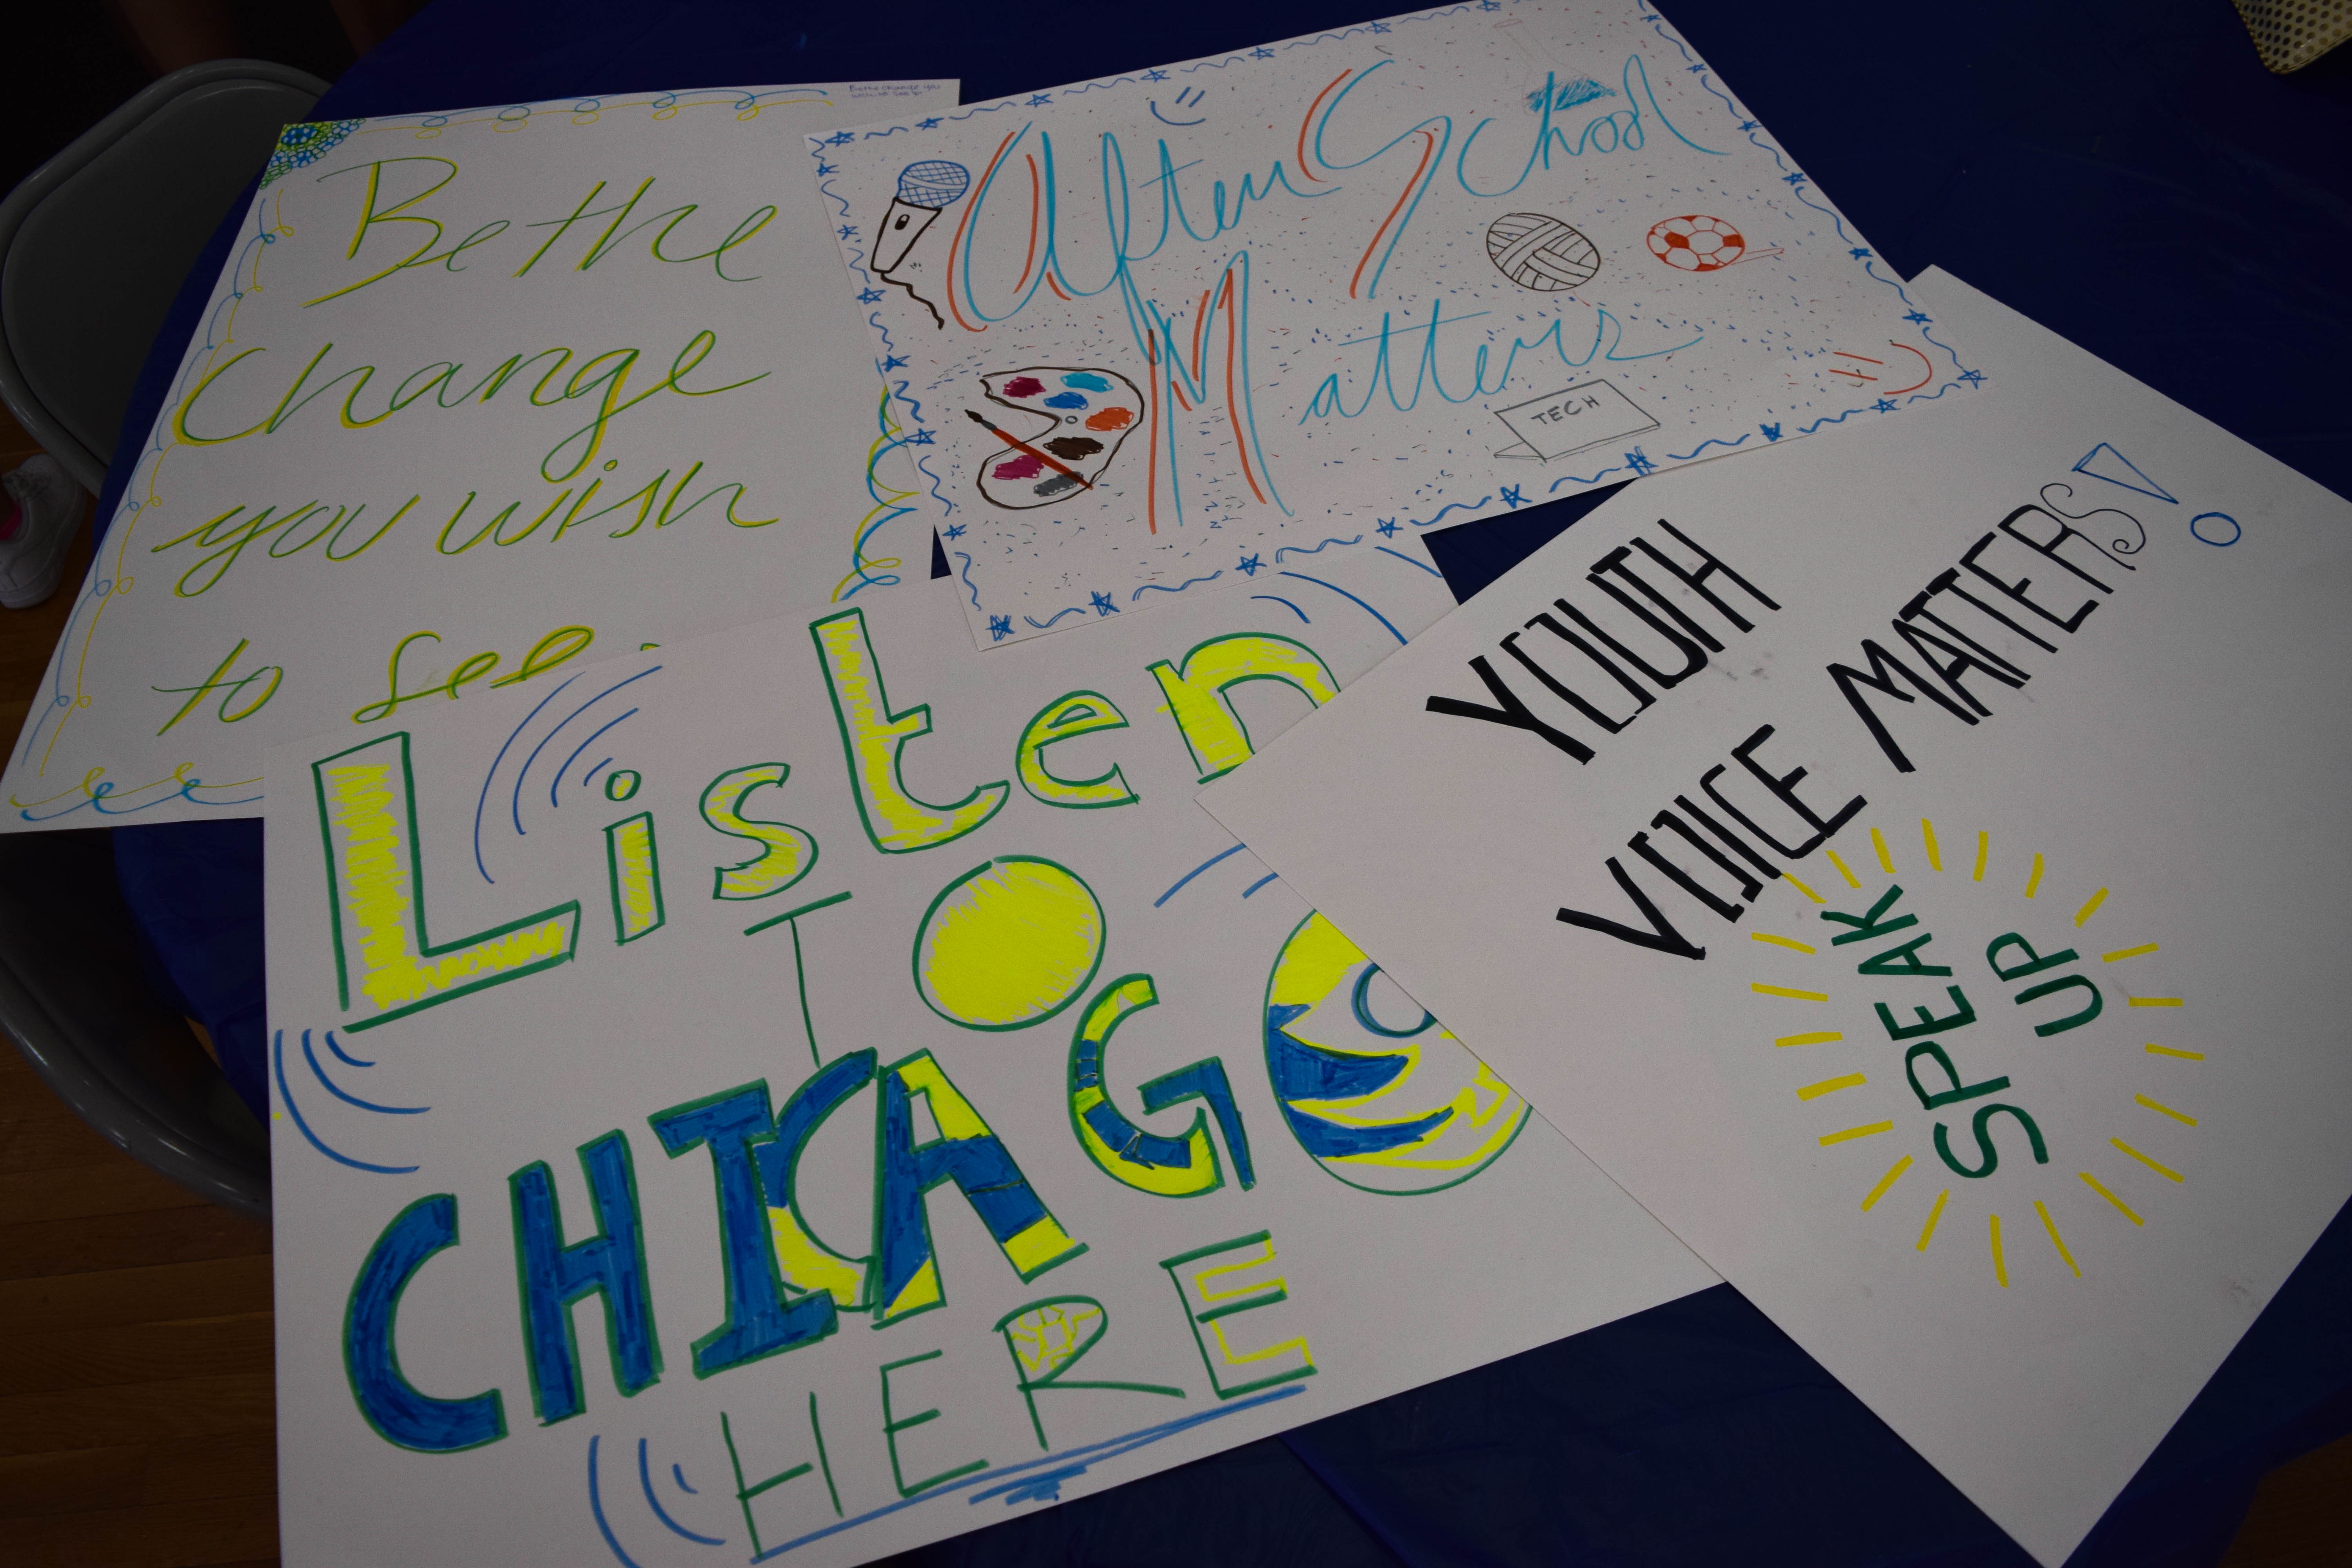 Be the change you
wish to see
Be the
Change
you wish
to see.
After School
Matters
TECH
Listen
TO
CHICAGO
HERE
YOUTH
VOICE MATTERS!
SPEAK
UP